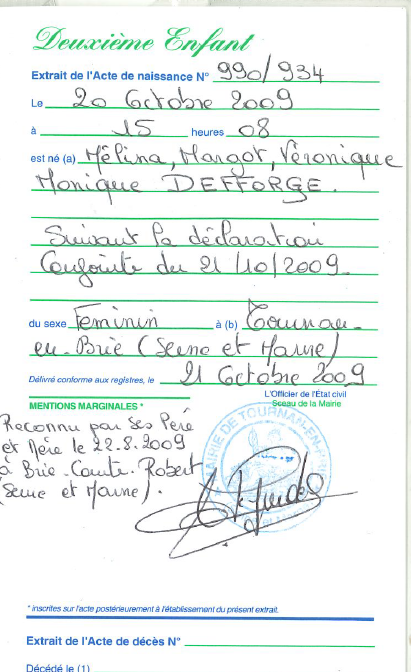 Deuxième Enfant
Extrait de l'Acte de naissance N° 990/934
Le 20 Octobre 2009
à 15 heures 08
est né (a) Mélina, Margot, Véronique
Monique DEFFORGE.
Suivant la déclaration
Conjointe du 21/10/2009
du sexe Féminin à (b) Tournan-
en-Brie (Seine et Marne)
Délivré conforme aux registres, le 21 Octobre 2009
L'Officier de l'État civil
Sceau de la Mairie
MENTIONS MARGINALES *
Reconnu par ses Père
et Mère le 22.8.2009
à Brie-Comte-Robert
(Seine et Marne).
MAIRIE DE TOURNAN-EN-BRIE
* inscrites sur l'acte postérieurement à l'établissement du présent extrait.
Extrait de l'Acte de décès N°
Décédé le (1)